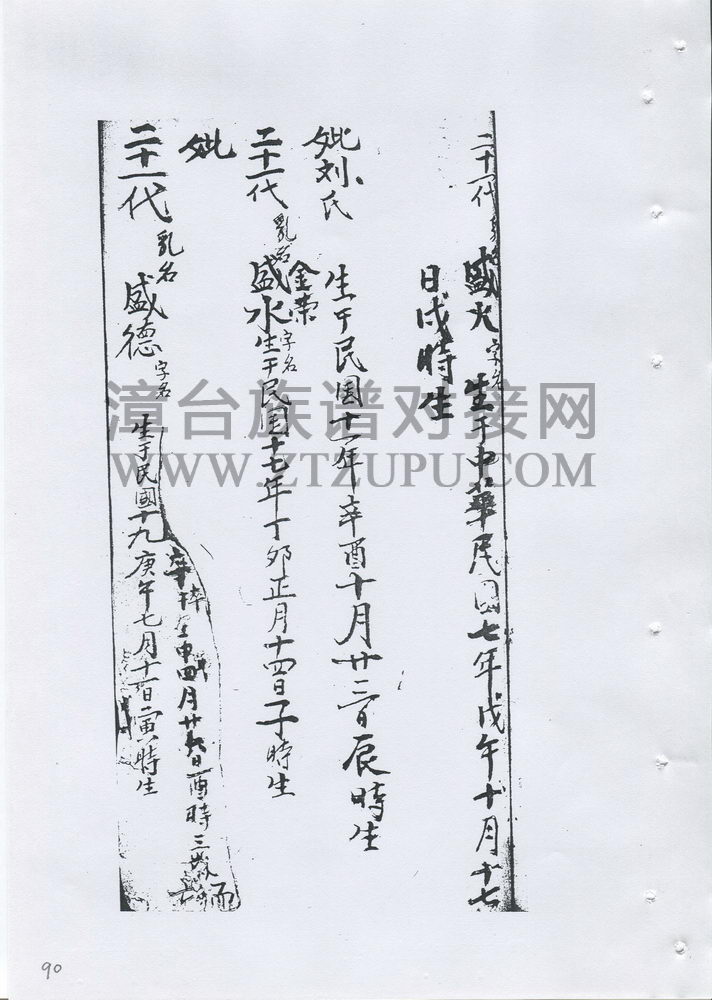 二十一代 乳名 盛火 字名 生于中華民國七年戊午十月十七
日戌時生
妣刘氏 生于民国十一年辛酉十月廿三日辰時生
金荣
二十一代 乳名 盛水 字名 生于民国十七年丁卯正月十四日子時生
妣
卒 申四月廿 日酉時三歲
二十一代 乳名 盛德 字名 生于民國十九庚午七月十一日寅時生
漳台族谱对接网
WWW.ZTZUPU.COM
90